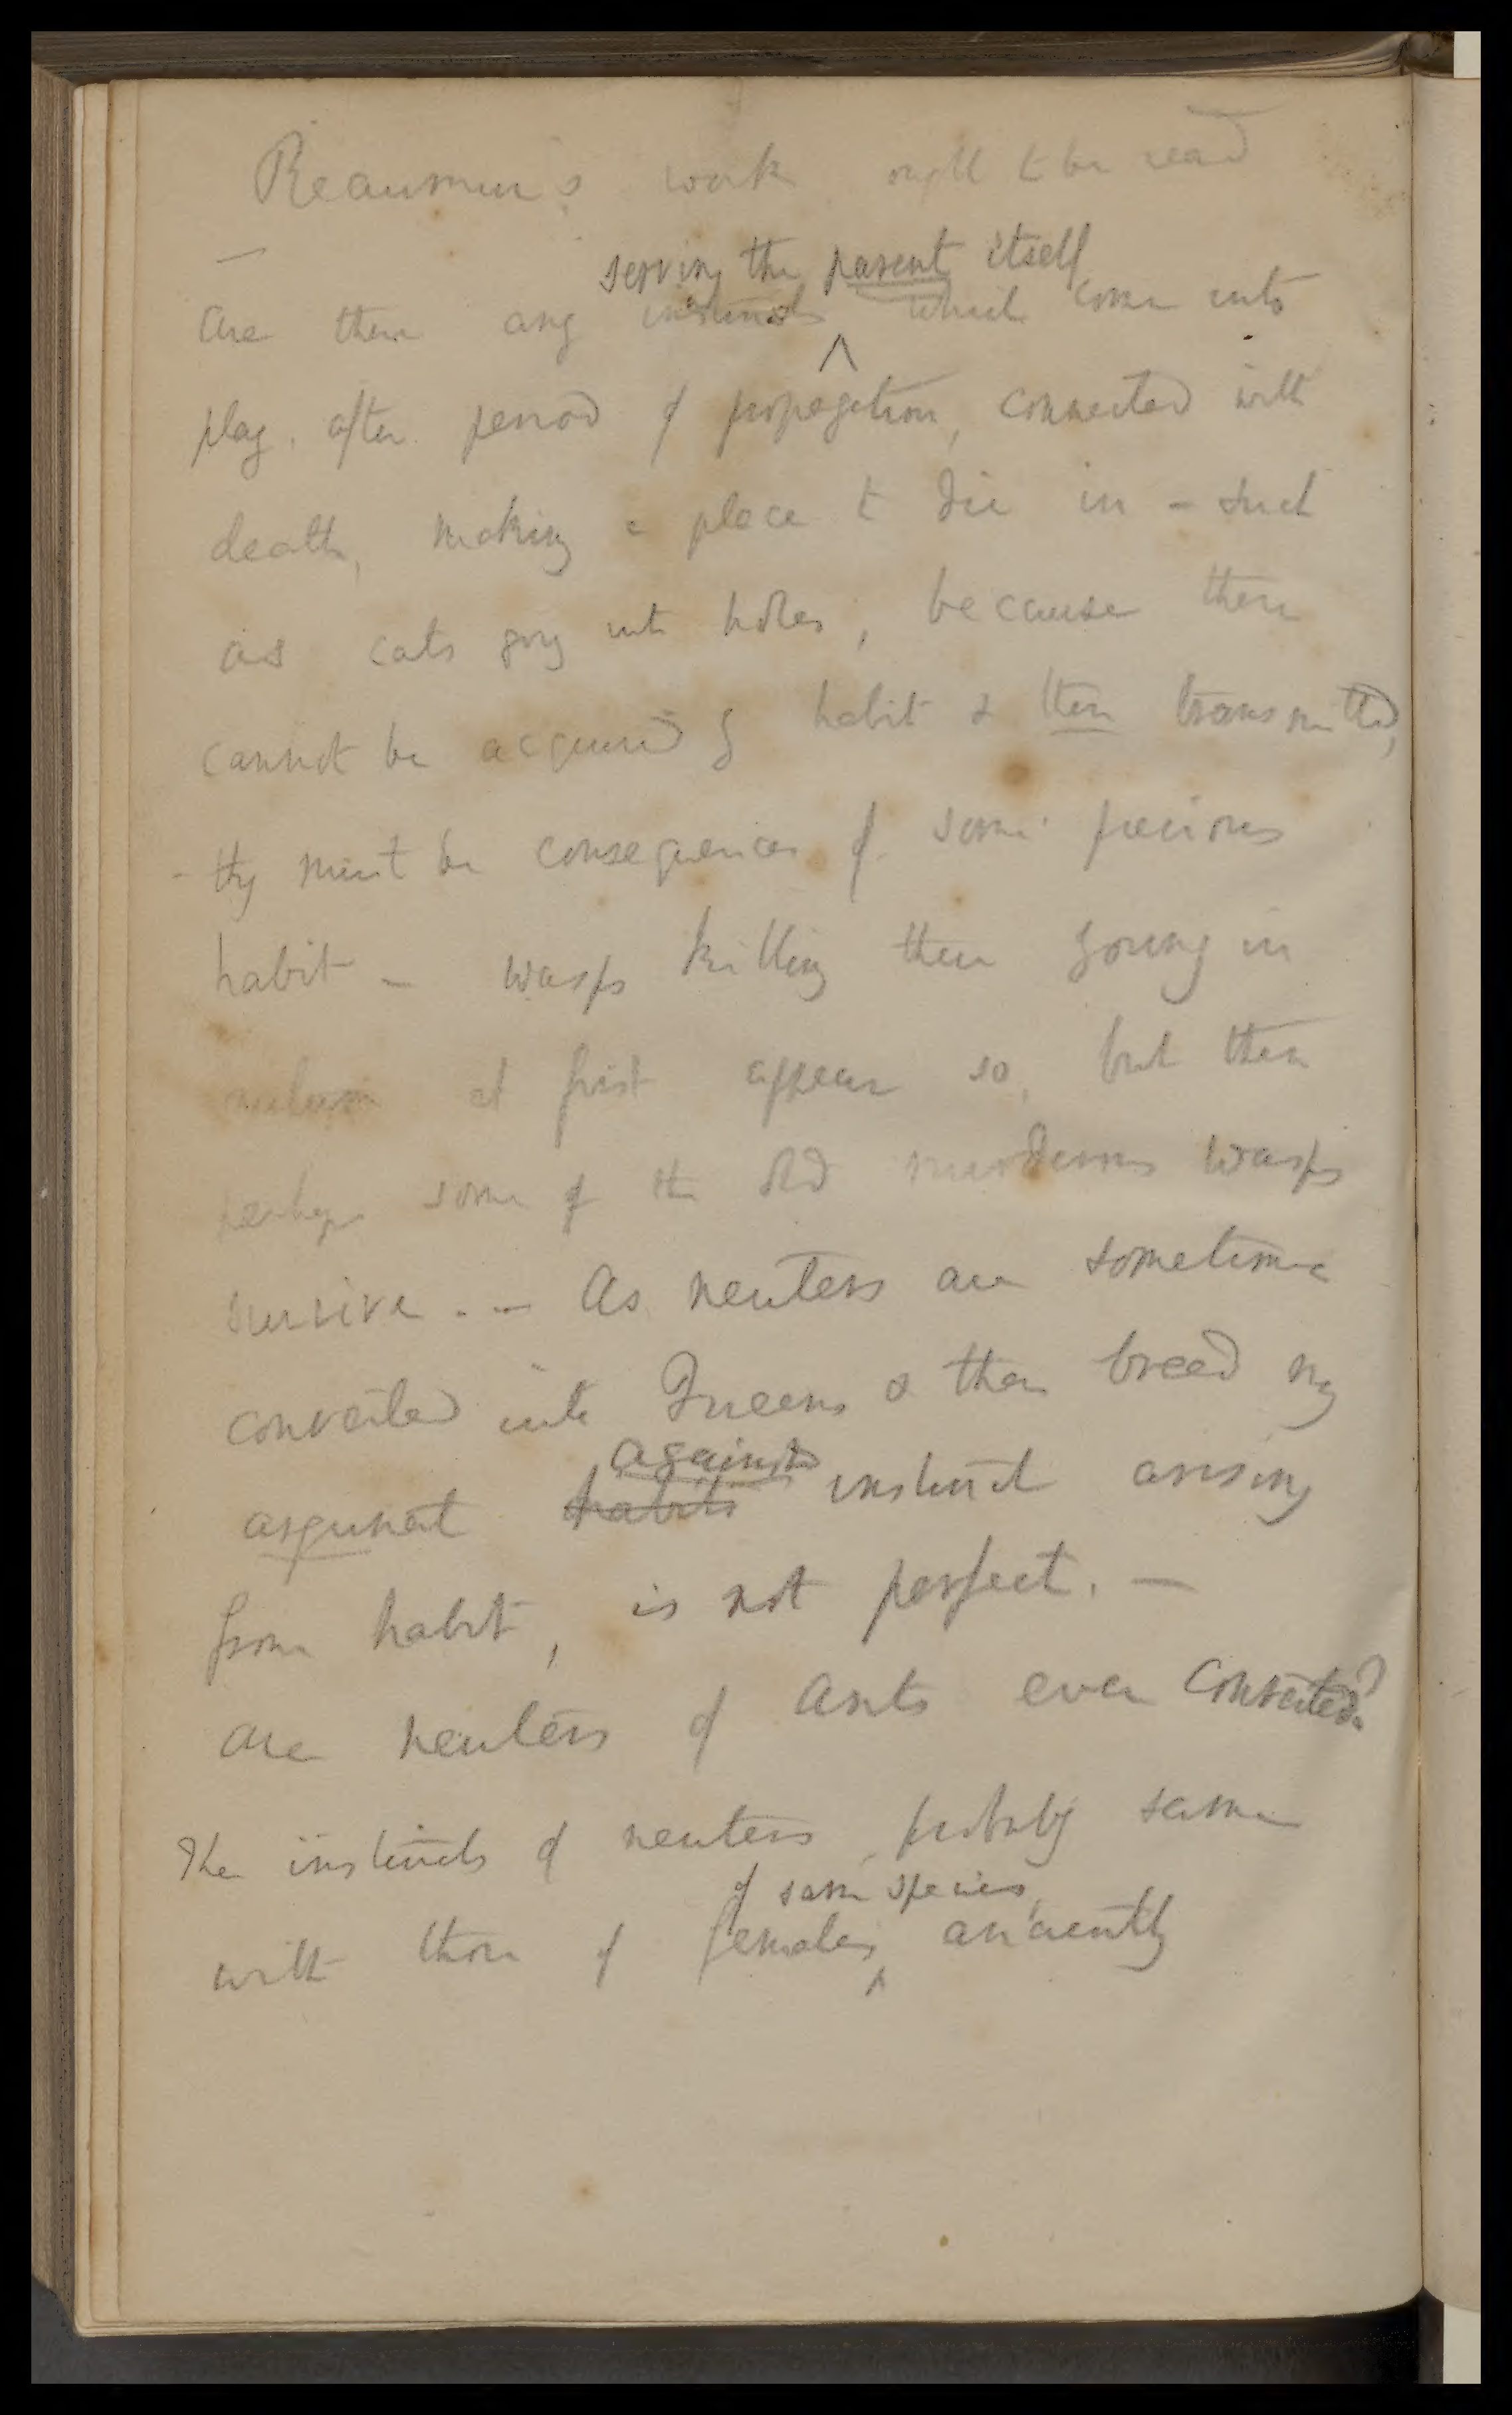 Reaumur's work ought to be read
—
serving the parent itself
Are there any instincts ^ which come into
play, after period of propagation, connected with
death, making a place to die in – such
as cats going into holes, because these
cannot be acquired by habit & then transmitted,
- they must be consequences of some previous
habit – wasps killing their young in
autumn at first appear so, but then
perhaps some of the old murderous wasps
survive. – As neuters are sometime
converted into Queens & then breed my
against
argument habits instinct arising
from habit, is not perfect. —
Are neuters of ants ever converted?
The instincts of neuters, probably same
of same species,
with those of females ^ anciently